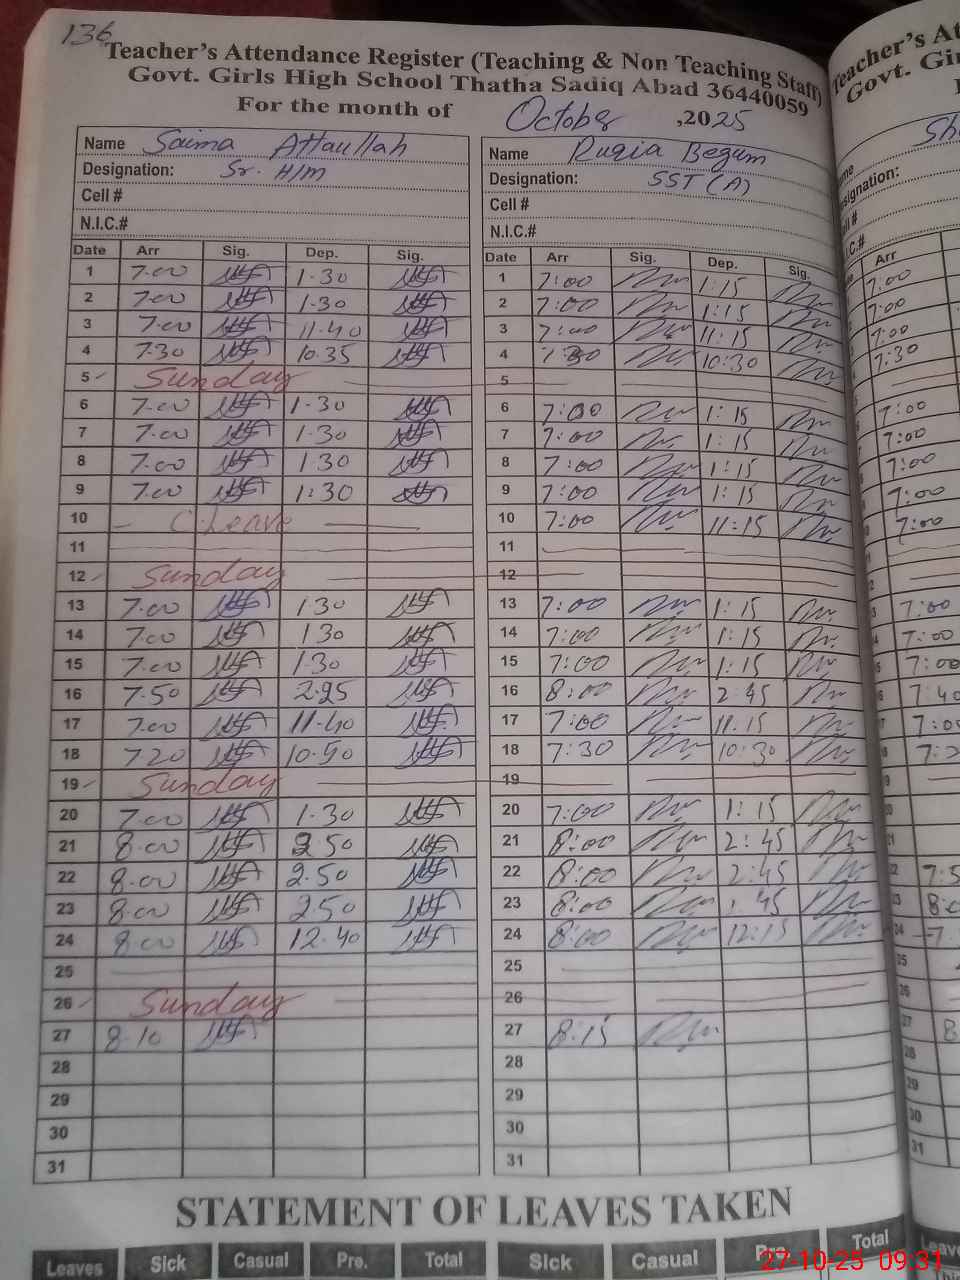 136
Teacher's Attendance Register (Teaching & Non Teaching Staff)
Govt. Girls High School Thatha Sadiq Abad 36440059
For the month of October ,2025
Name Saima Attaullah
Designation: Sr. H/M
Cell #
N.I.C.#
Date Arr Sig. Dep. Sig.
1 7.00 1.30
2 7.00 1.30
3 7.00 11.40
4 7.30 10.35
5 Sunday
6 7.00 1.30
7 7.00 1.30
8 7.00 1.30
9 7.00 1:30
10 C.Leave
11
12 Sunday
13 7.00 1.30
14 7.00 1 30
15 7.00 1.30
16 7.50
17 7.00 11.40
18 7 20
19 Sunday
20 7.00 1.30
21 8.00 2 50
22 8.00 2.50
23 8.00 2.50
24 8.00 12.40
25
26 Sunday
27 8.10
28
29
30
31
Name Ruqia Begum
Designation: SST (A)
Cell #
N.I.C.#
Date Arr Sig. Dep. Sig.
1 7:00 1:15
2 7:00 1:15
3 7:00 11:15
4 10:30
5
6 7:00 1:15
7 7:00 1:15
8 7:00 1:15
9 7:00 1:15
10 7:00 11:15
11
12
13 7:00 1:15
14 7:00 1:15
15 7:00 1:15
16 8:00 2:45
17 7:00 11.15
18 7:30 10:30
19
20 7:00 1:15
21 8:00 2:45
22 8:00 2:45
23 8:00
24 8:00 12:15
25
26
27 8:15
28
29
30
31
Arr
7:00
7:00
7:00
7:30
7:00
7:00
7:00
7:00
7:00
7:00
7:00
7:00
STATEMENT OF LEAVES TAKEN
Leaves Sick Casual Pre. Total Sick Casual Total
27-10-25 09:31